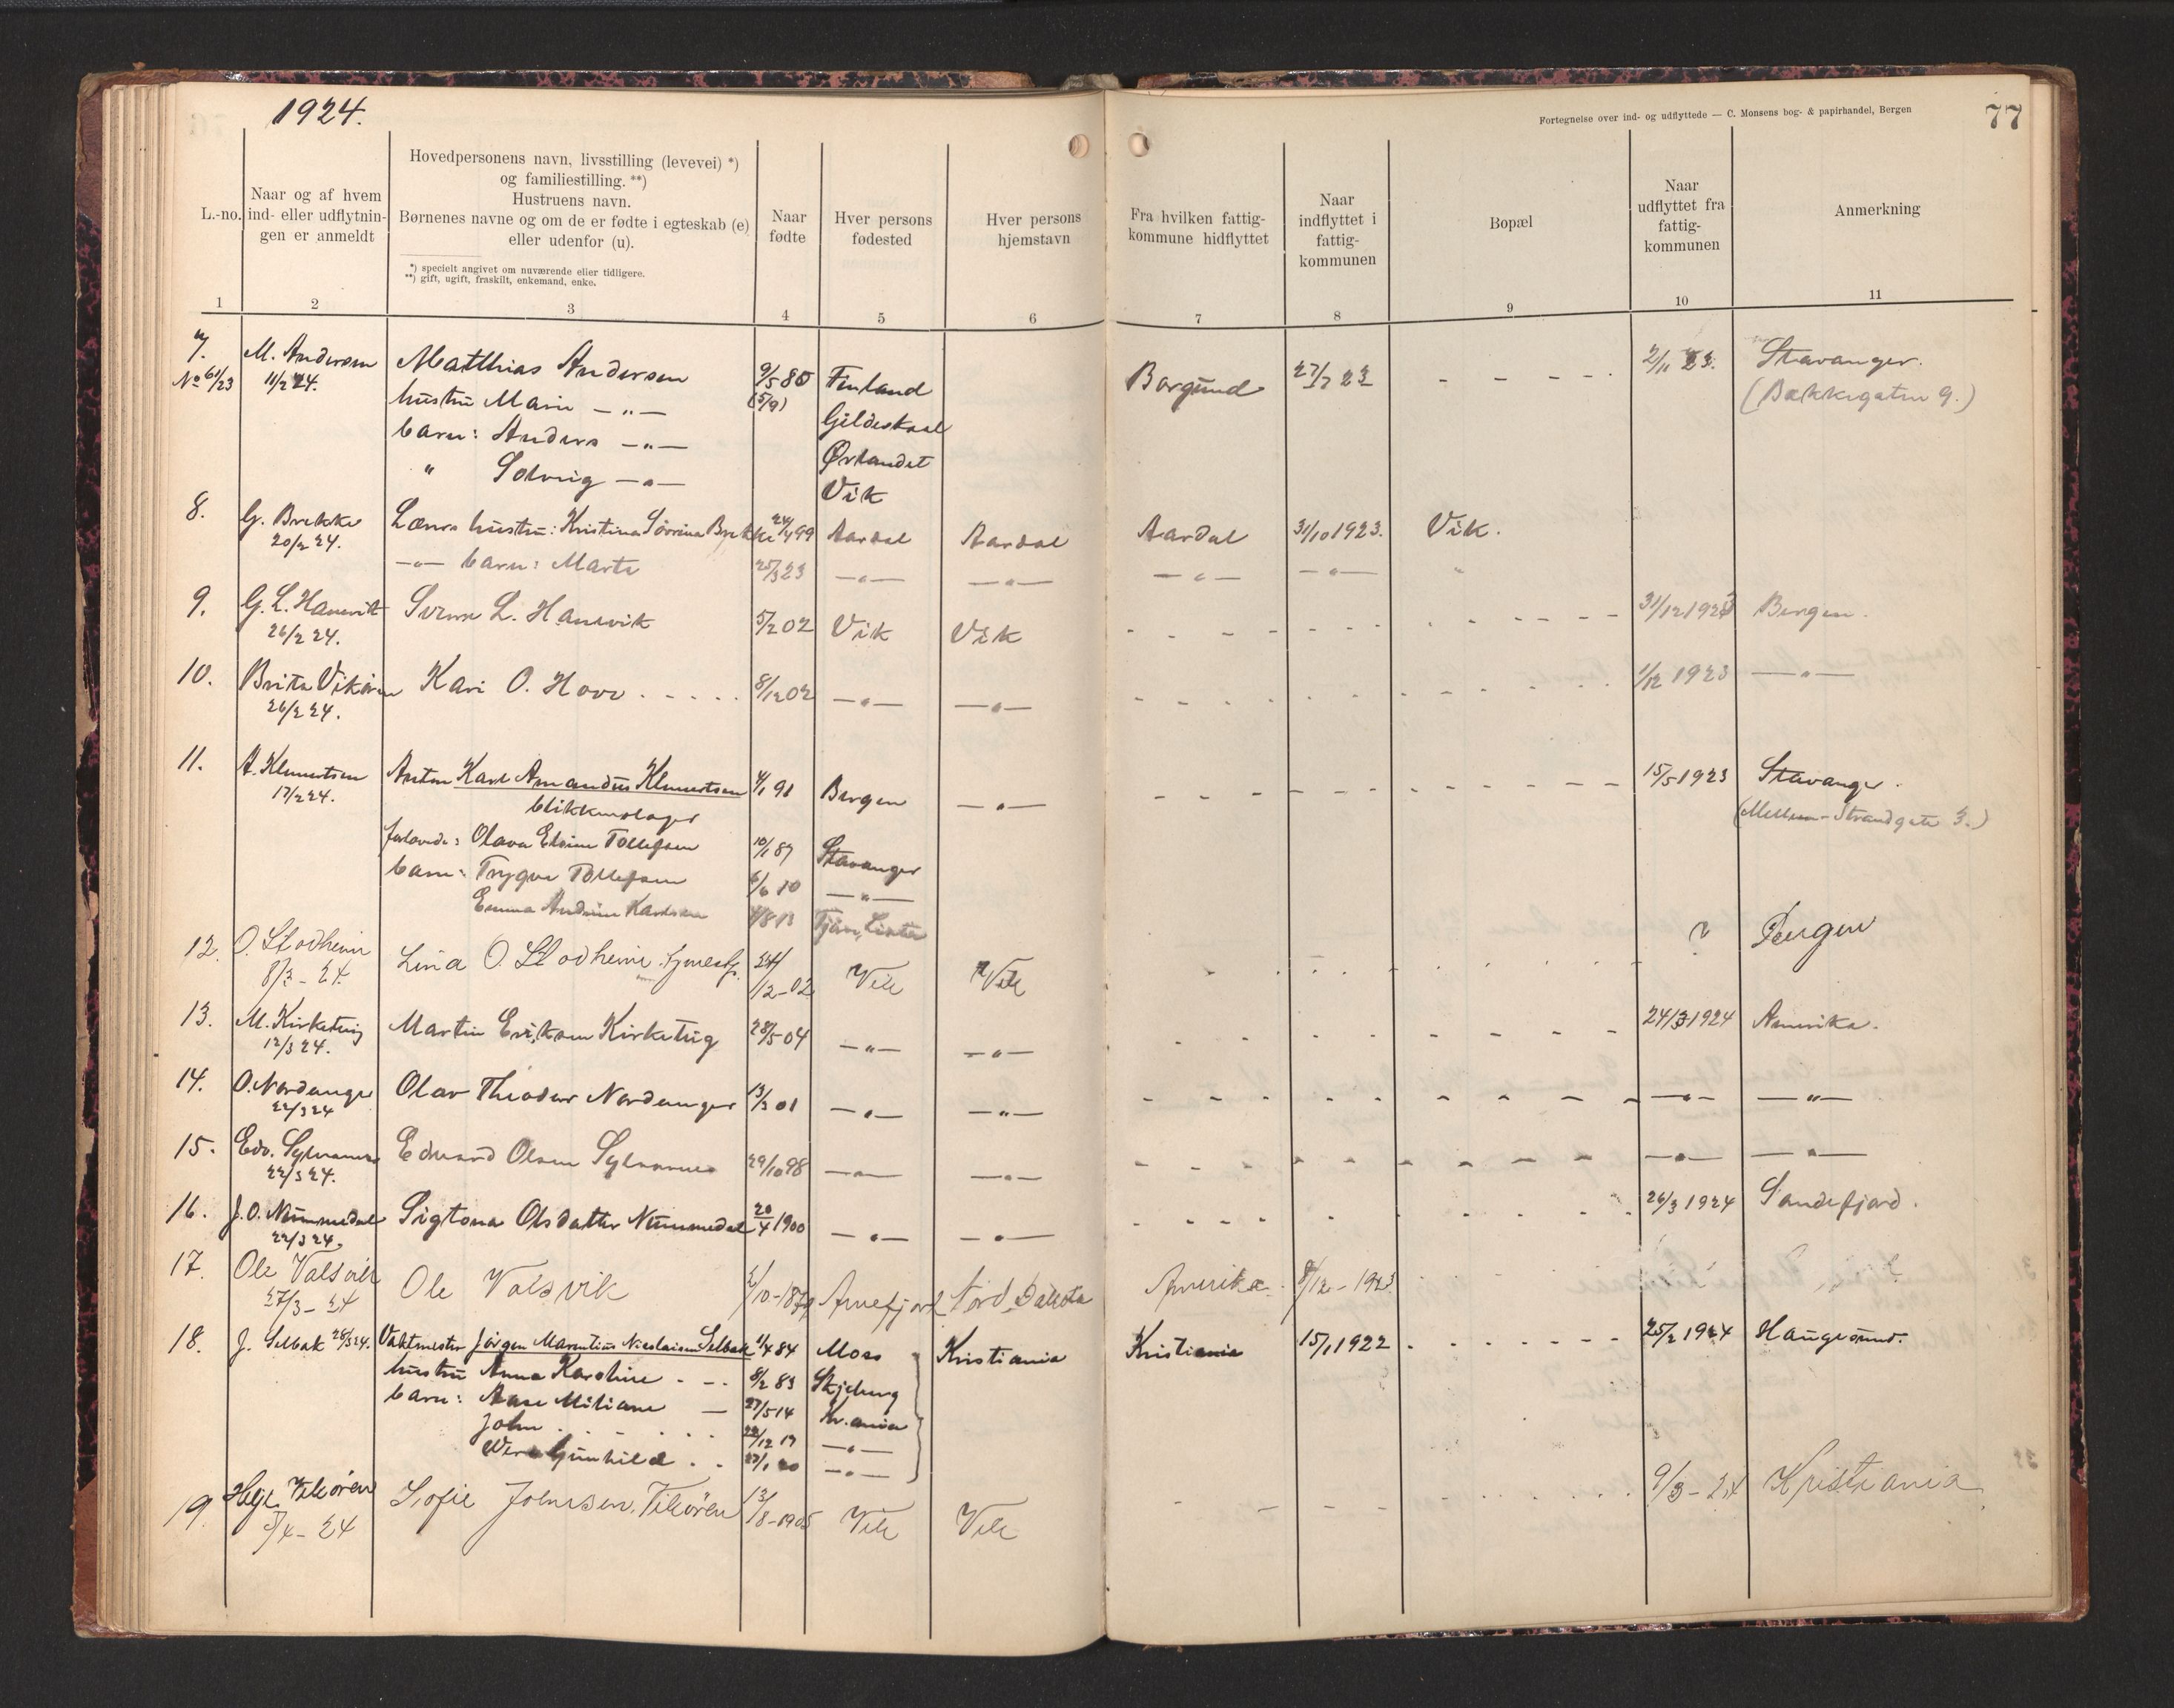 1924.
Fortegnelse over ind- og udflyttede — C. Monsens bog- & papirhandel, Bergen
77
L.-no.
Naar og af hvem
ind- eller udflytnin-
gen er anmeldt
Hovedpersonens navn, livsstilling (levevei) *)
og familiestilling. **)
Hustruens navn.
Børnenes navne og om de er fødte i egteskab (e)
eller udenfor (u).
*) specielt angivet om nuværende eller tidligere.
**) gift, ugift, fraskilt, enkemand, enke.
Naar
fødte
Hver persons
fødested
Hver persons
hjemstavn
Fra hvilken fattig-
kommune hidflyttet
Naar
indflyttet i
fattig-
kommunen
Bopæl
Naar
udflyttet fra
fattig-
kommunen
Anmerkning
1 2 3 4 5 6 7 8 9 10 11
7. M. Andersen Matthias Andersen 9/5 80 Finland Borgund 27/7 23 - - - - 2/11 23. Stavanger.
No 61/23 11/2 24. hustru Marie —„— (5/9) Gildeskaal (Bakkegaten 9.)
barn: Anders —„— Ørlandet
„ Solveig —„— Vik
8. G. Brekke Lærers hustru: Kristina Sørrina Brekke 24/4 99 Aardal Aardal Aardal 31/10 1923. Vik.
20/2 24. —„— barn: Marta 25/3 23 —„— —„— —„— —„— „
9. G. L. Hanevik Sverre L. Hanevik 5/2 02 Vik Vik - - - - 31/12 1923 Bergen.
26/2 24.
10. Brita Vikøren Kari O. Hove 8/12 02 —„— —„— - - - - 1/12 1923 —„—
26/2 24.
11. A. Klemetsen Anton Karl Amandus Klemetsen 4/1 91 Bergen —„— - - - - 15/5 1923 Stavanger.
17/2 24. blikkenslager (Mellem-Strandgate 3.)
forlovede: Olava Elvine Tollefsen 10/1 87 Stavanger
barn: Trygve Tollefsen 6/6 10 —„—
Emma Andrine Karlsen 4/8 13
12. O. Stodheim Lina O. Stodheim 24/12-02 Vik Vik - - - - ? Bergen
8/3 - 24.
13. M. Kirketeig Martin Eriksen Kirketeig 28/5 04 —„— —„— - - - - 24/3 1924 Amerika.
12/3 24.
14. O. Nordanger Olav Theodor Nordanger 13/3 01 —„— —„— - - - - —„— —„—
22/3 24
15. Edv. Sylvarnes Edvard Olsen Sylvarnes 29/10 98 —„— —„— - - - - —„— —„—
22/3 24.
16. J. O. Nummedal Sigtona Olsdatter Nummedal 20/4 1900 —„— —„— - - - - 26/3 1924 Sandefjord.
22/3 24.
17. Ole Valsvik Ole Valsvik Arnefjord Nord Dakota Amerika 8/12 - 1923
27/3 - 24
18. J. Selbak 28/3 24. Vaktmester Jørgen Marentius Nicolaisen Selbak 1/4 84 Moss Kristiania Kristiania 15/1 1922 - - - - 25/2 1924 Haugesund.
hustru Anna Karoline - - - 8/2 83 Skjeberg
barn: Aase Miliane — 27/5 14 Kr.ania
John . . . . 22/12 17 —„—
Wera Gunhild . . 27/1 20 —„—
19. Helje Vikøren Sofie Johnsen Vikøren 13/8-1905 Vik Vik - - - - 9/3 - 24 Kristiania
5/4 - 24